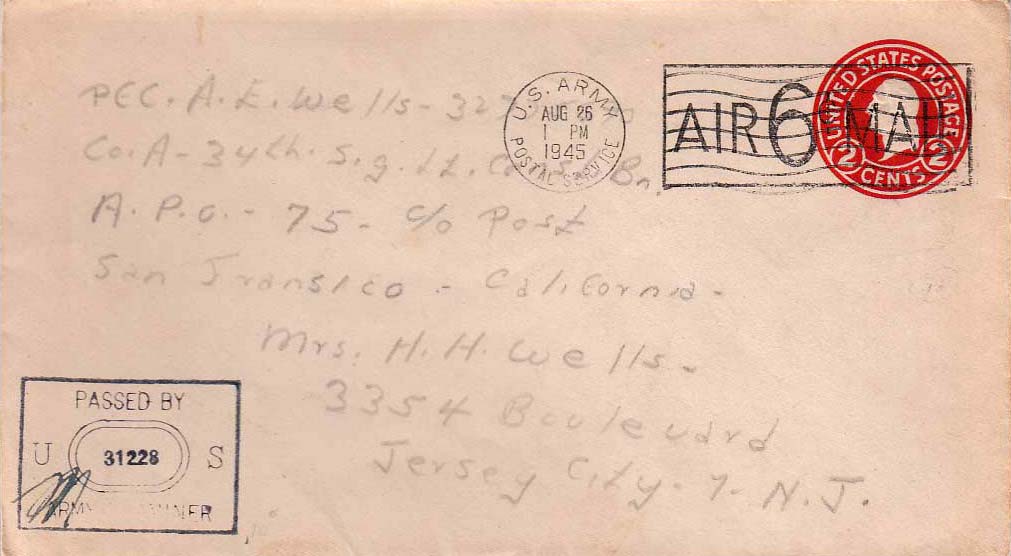 PFC. A. E. Wells -
Co. A - 34th. Sig. Bn.
A. P. O. - 75 - c/o Post
San Fransico - California -
Mrs. H. H. Wells -
3354 Boulevard
Jersey City - 7 - N. J.
U. S. ARMY
AUG 26
1 PM
1945
POSTAL SERVICE
AIR 6¢ MAIL
UNITED STATES POSTAGE
2 CENTS 2
PASSED BY
U 31228 S
ARMY